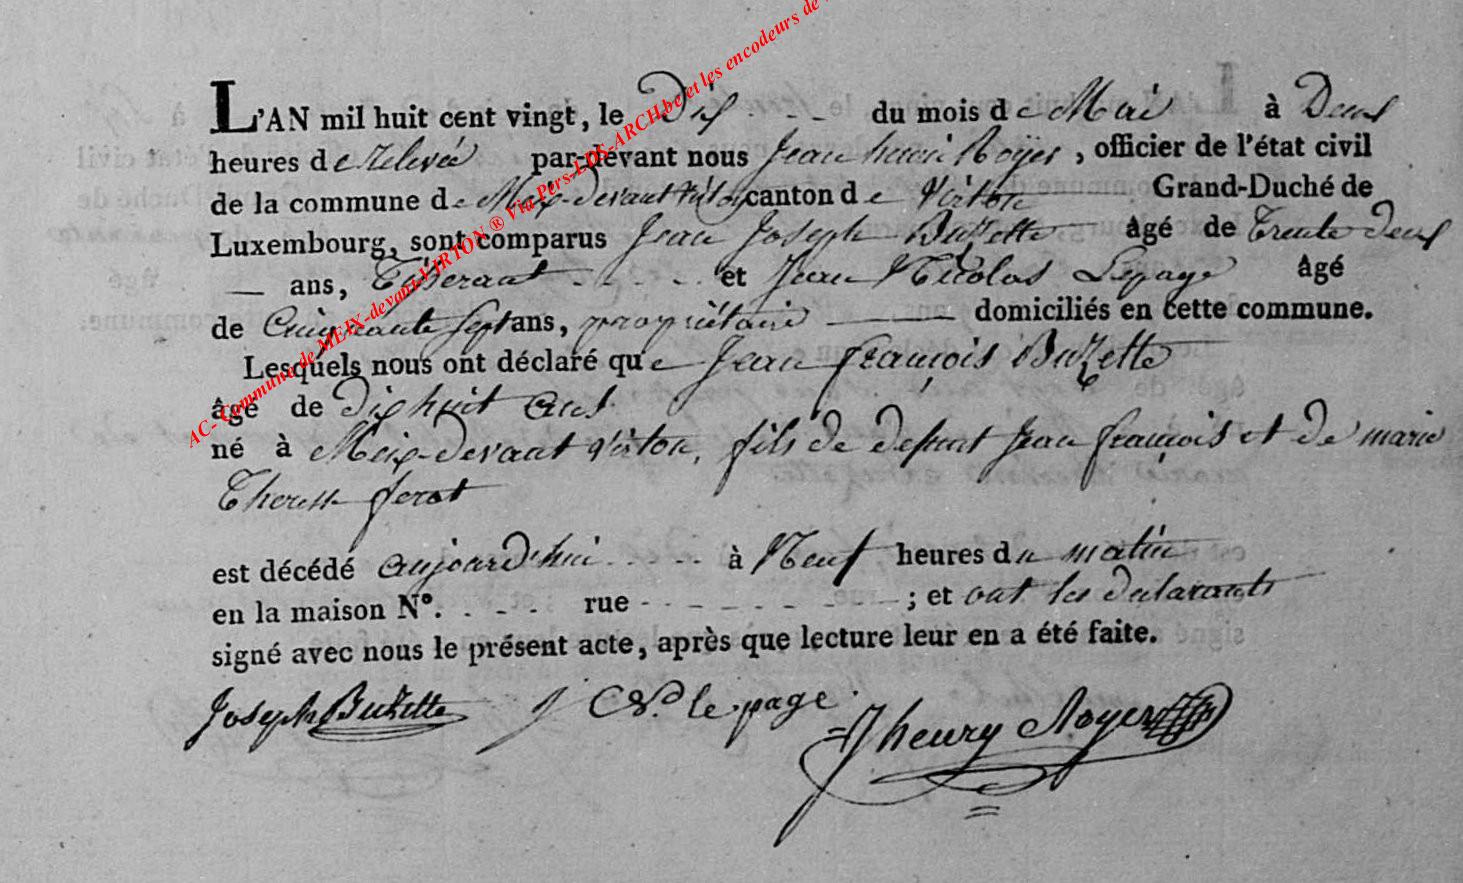 AC- Commune de MEIX-devant-VIRTON ® Via Pers-LDS-ARCH.be et les encodeurs de
L'AN mil huit cent vingt, le Dix du mois de Mai à Deux
heures de relevée par-devant nous Jean henri Royer, officier de l'état civil
de la commune de Meix-devant virton canton de Virton Grand-Duché de
Luxembourg, sont comparus Jean Joseph Buzette âgé de Trente deux
— ans, Tisserant et Jean Nicolas Lepage âgé
de Cinquante sept ans, propriétaire ——— domiciliés en cette commune.
Lesquels nous ont déclaré que Jean françois Buzette
âgé de Dix huit ans.
né à Meix-devant virton, fils de defunt Jean françois et de marie
Theresse ferot
est décédé aujourd'hui à Neuf heures du matin
en la maison N°. - - - - rue - - - - - - - - ; et ont les declarants
signé avec nous le présent acte, après que lecture leur en a été faite.
Joseph Buzette J le page
Jhenry Royer